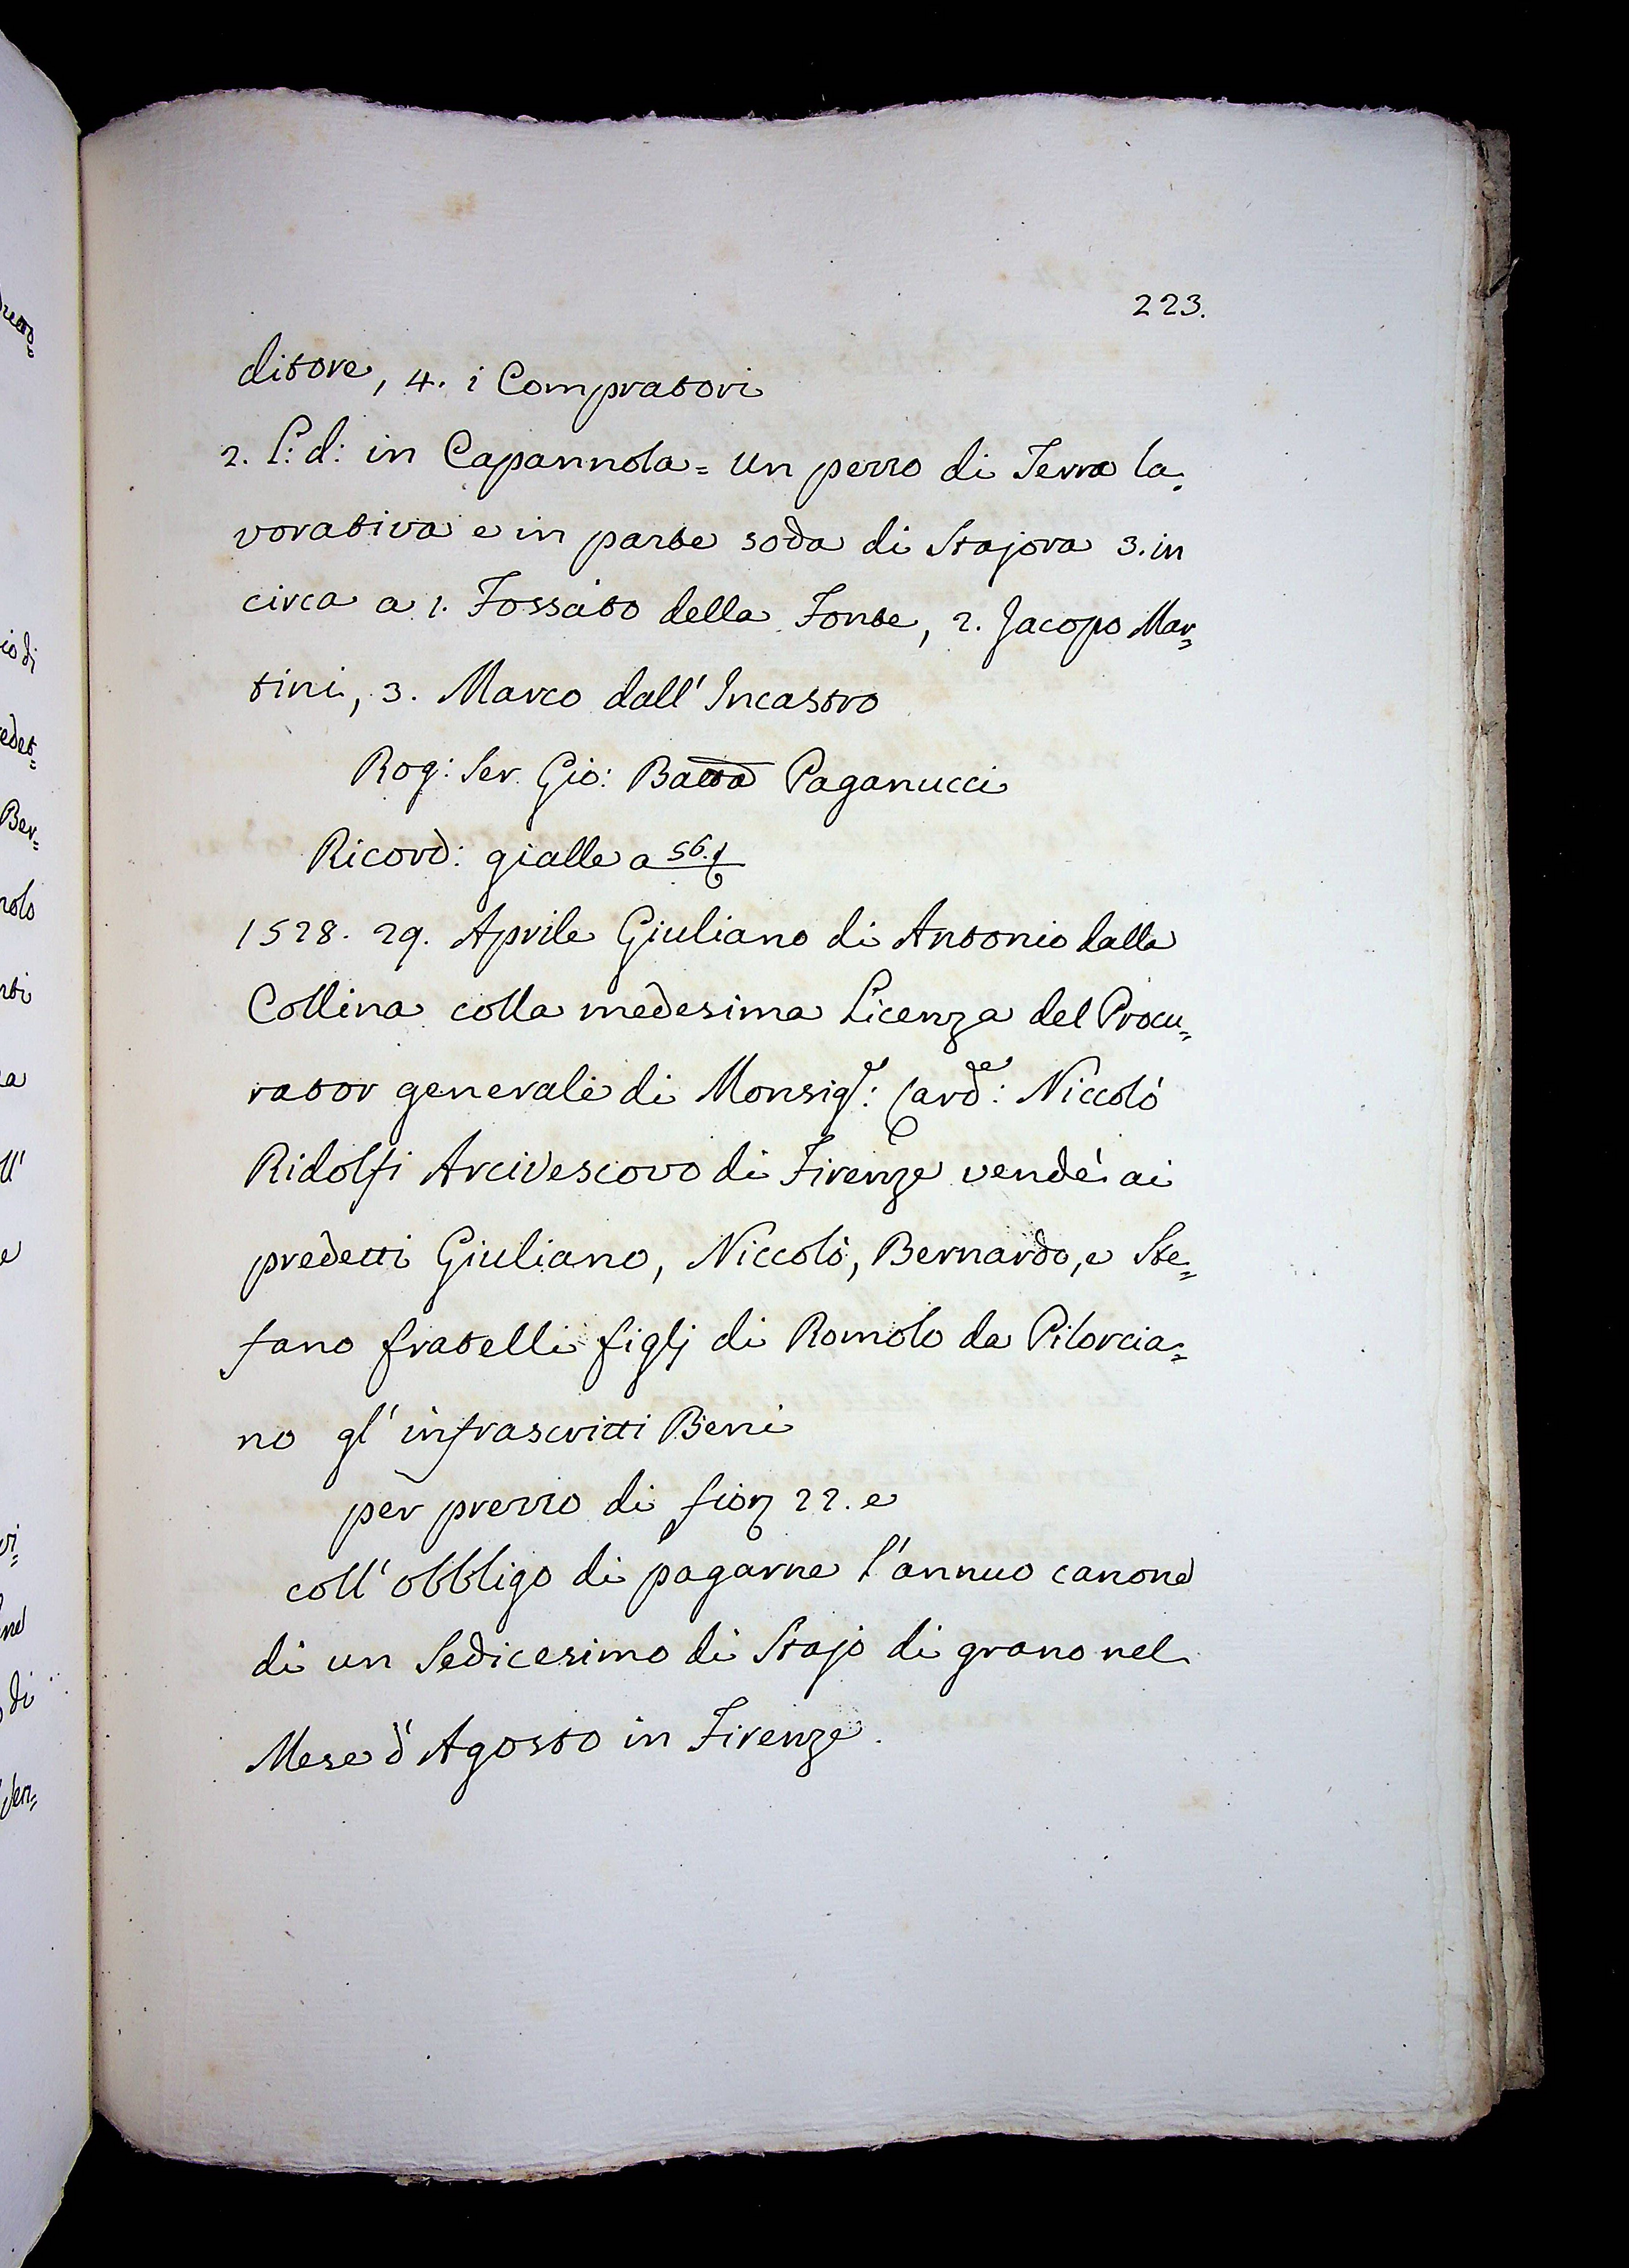 223.
ditore, 4. i Compratori
2. L: d: in Capannola= un pezzo di Terra la=
vorativa e in parte soda di Stajora 3. in
circa a 1. Fossato della Fonte, 2. Jacopo Mar=
tini, 3. Marco dall' Incastro
Rog: Ser Gio: Batta Paganucci
Ricord: gialle a 56.
1528. 29. Aprile Giuliano di Antonio dalla
Collina colla medesima Licenza del Procu=
rator generale di Monsigr: Carde: Niccolò
Ridolfi Arcivescovo di Firenze vendè ai
predetti Giuliano, Niccolò, Bernardo, e Ste=
fano fratelli figlj di Romolo da Pilorcia=
no gl' infrascritti Beni
per prezzo di fior 22. e
coll' obbligo di pagarne l'annuo canone
di un Sedicesimo di Stajo di grano nel
Mese d' Agosto in Firenze.